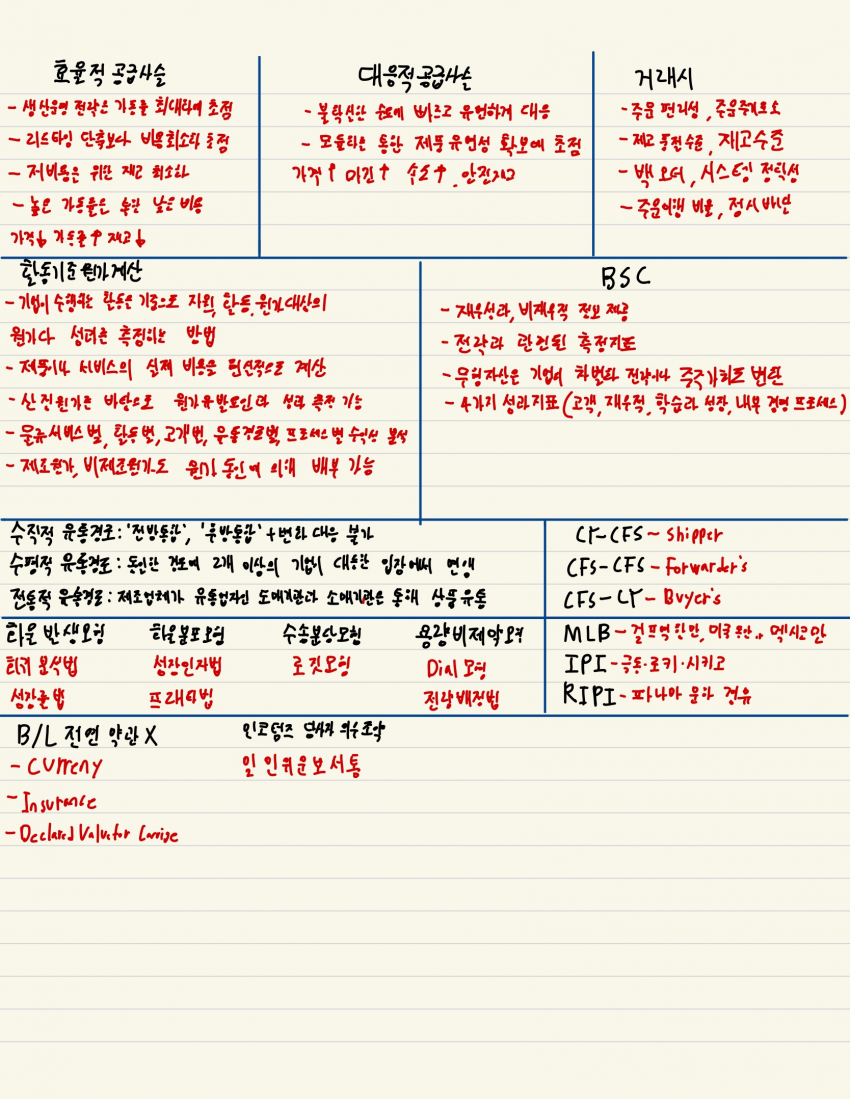 효율적 공급사슬
- 생산운영 전략은 가동률 최대화에 초점
- 리드타임 단축보다 비용최소화 초점
- 저비용을 위한 재고 최소화
- 높은 가동률을 통한 낮은 비용
가격↓ 가동률↑ 재고↓
대응적 공급사슬
- 불확실한 수요에 빠르고 유연하게 대응
- 모듈화를 통한 제품 유연성 확보에 초점
가격↑ 마진↑ 속도↑, 안전재고
거래시
- 주문 편리성, 주문주기요소
- 제고 품절수준, 재고수준
- 백 오더, 시스템 정확성
- 주문이행 비율, 정시 배달
활동기준 원가계산
- 기업이 수행하는 활동을 기준으로 자원, 활동, 원가대상의
원가와 성과를 측정하는 방법
- 제품이나 서비스의 실제 비용을 현실적으로 계산
- 산정원가를 바탕으로 원가유발요인과 성과 측정 가능
- 물류서비스별, 활동별, 고객별, 유통경로별, 프로세스별 수익성 분석
- 제조원가, 비제조원가도 원가동인에 의해 배부 가능
BSC
- 재무성과, 비재무적 정보 제공
- 전략과 관련된 측정지표
- 무형자산은 기업의 차별화 전략이나 주주가치로 변환
- 4가지 성과지표(고객, 재무적, 학습과 성장, 내부 경영 프로세스)
수직적 유통경로: '전방통합', '후방통합' + 변화 대응 불가
수평적 유통경로: 동일한 경로에 2개 이상의 기업이 대등한 입장에서 연맹
전통적 유통경로: 제조업체가 유통업자인 도매기관과 소매기관을 통해 상품유통
CY-CFS ~ Shipper
CFS-CFS - Forwarder's
CFS-CY - Buyer's
화물 발생모형
회귀 분석법
성장률법
화물분포모형
성장인자법
프래타법
수송분산모형
로짓모형
용량비제약모형
Dial 모형
전량배정법
MLB - 걸프역 한만, 미국 동안.. 멕시코만
IPI - 극동·로키·시카고
RIPI - 파나마 운하 경유
B/L 전면 약관 X
- Curreny
- Insurance
- Declared Value for Carrige
인코텀즈 당사자 의무조항
일 인 위 운 보 서 통